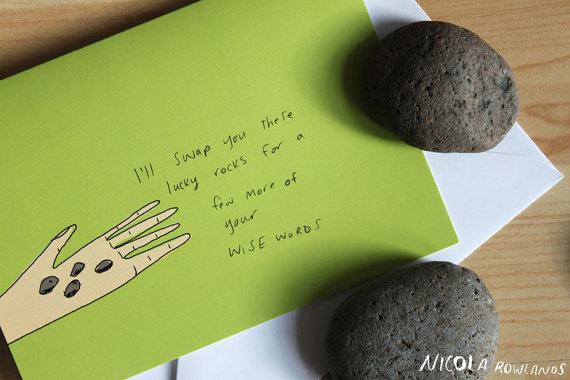 I'll swap you these
lucky rocks for a
few more of
your
WISE WORDS
NICOLA ROWLANDS